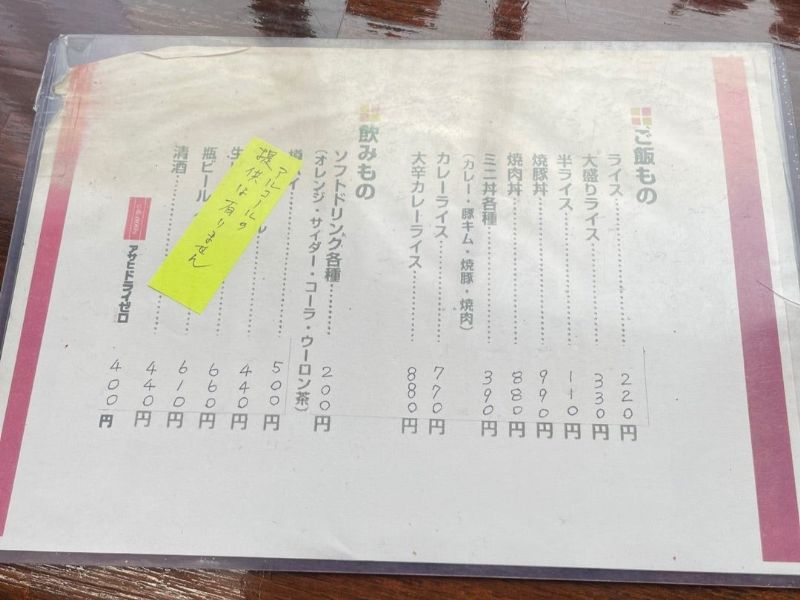 ご飯もの
ライス……220円
大盛りライス……330円
半ライス……110円
焼豚丼……990円
焼肉丼……880円
ミニ丼各種……390円
(カレー・豚キム・焼豚・焼肉)
カレーライス……770円
大辛カレーライス……880円
飲みもの
ソフトドリンク各種……200円
(オレンジ・サイダー・コーラ・ウーロン茶)
イ……500円
ル……440円
生……660円
瓶ビール……610円
清酒……440円
アサヒドライゼロ 400円
アルコールの
提供は有りません